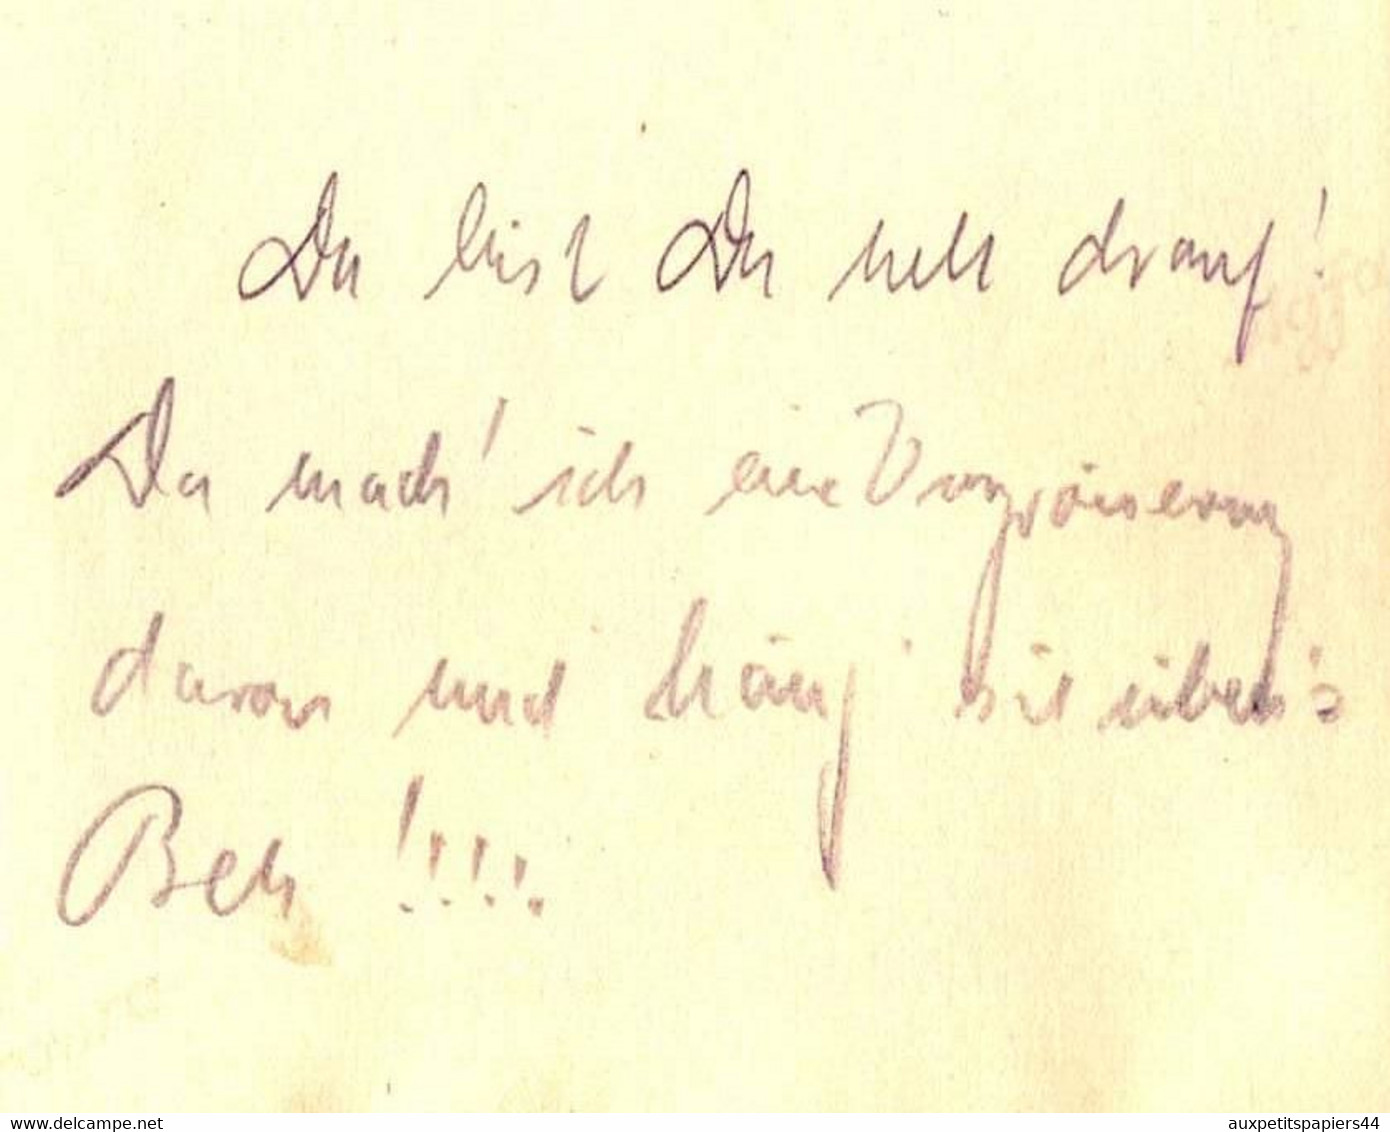 Da bist Du nett drauf!
Da mach' ich eine Vergrösserung
davon und häng' sie über's
Bett !!!!
www.delcampe.net
auxpetitspapiers44